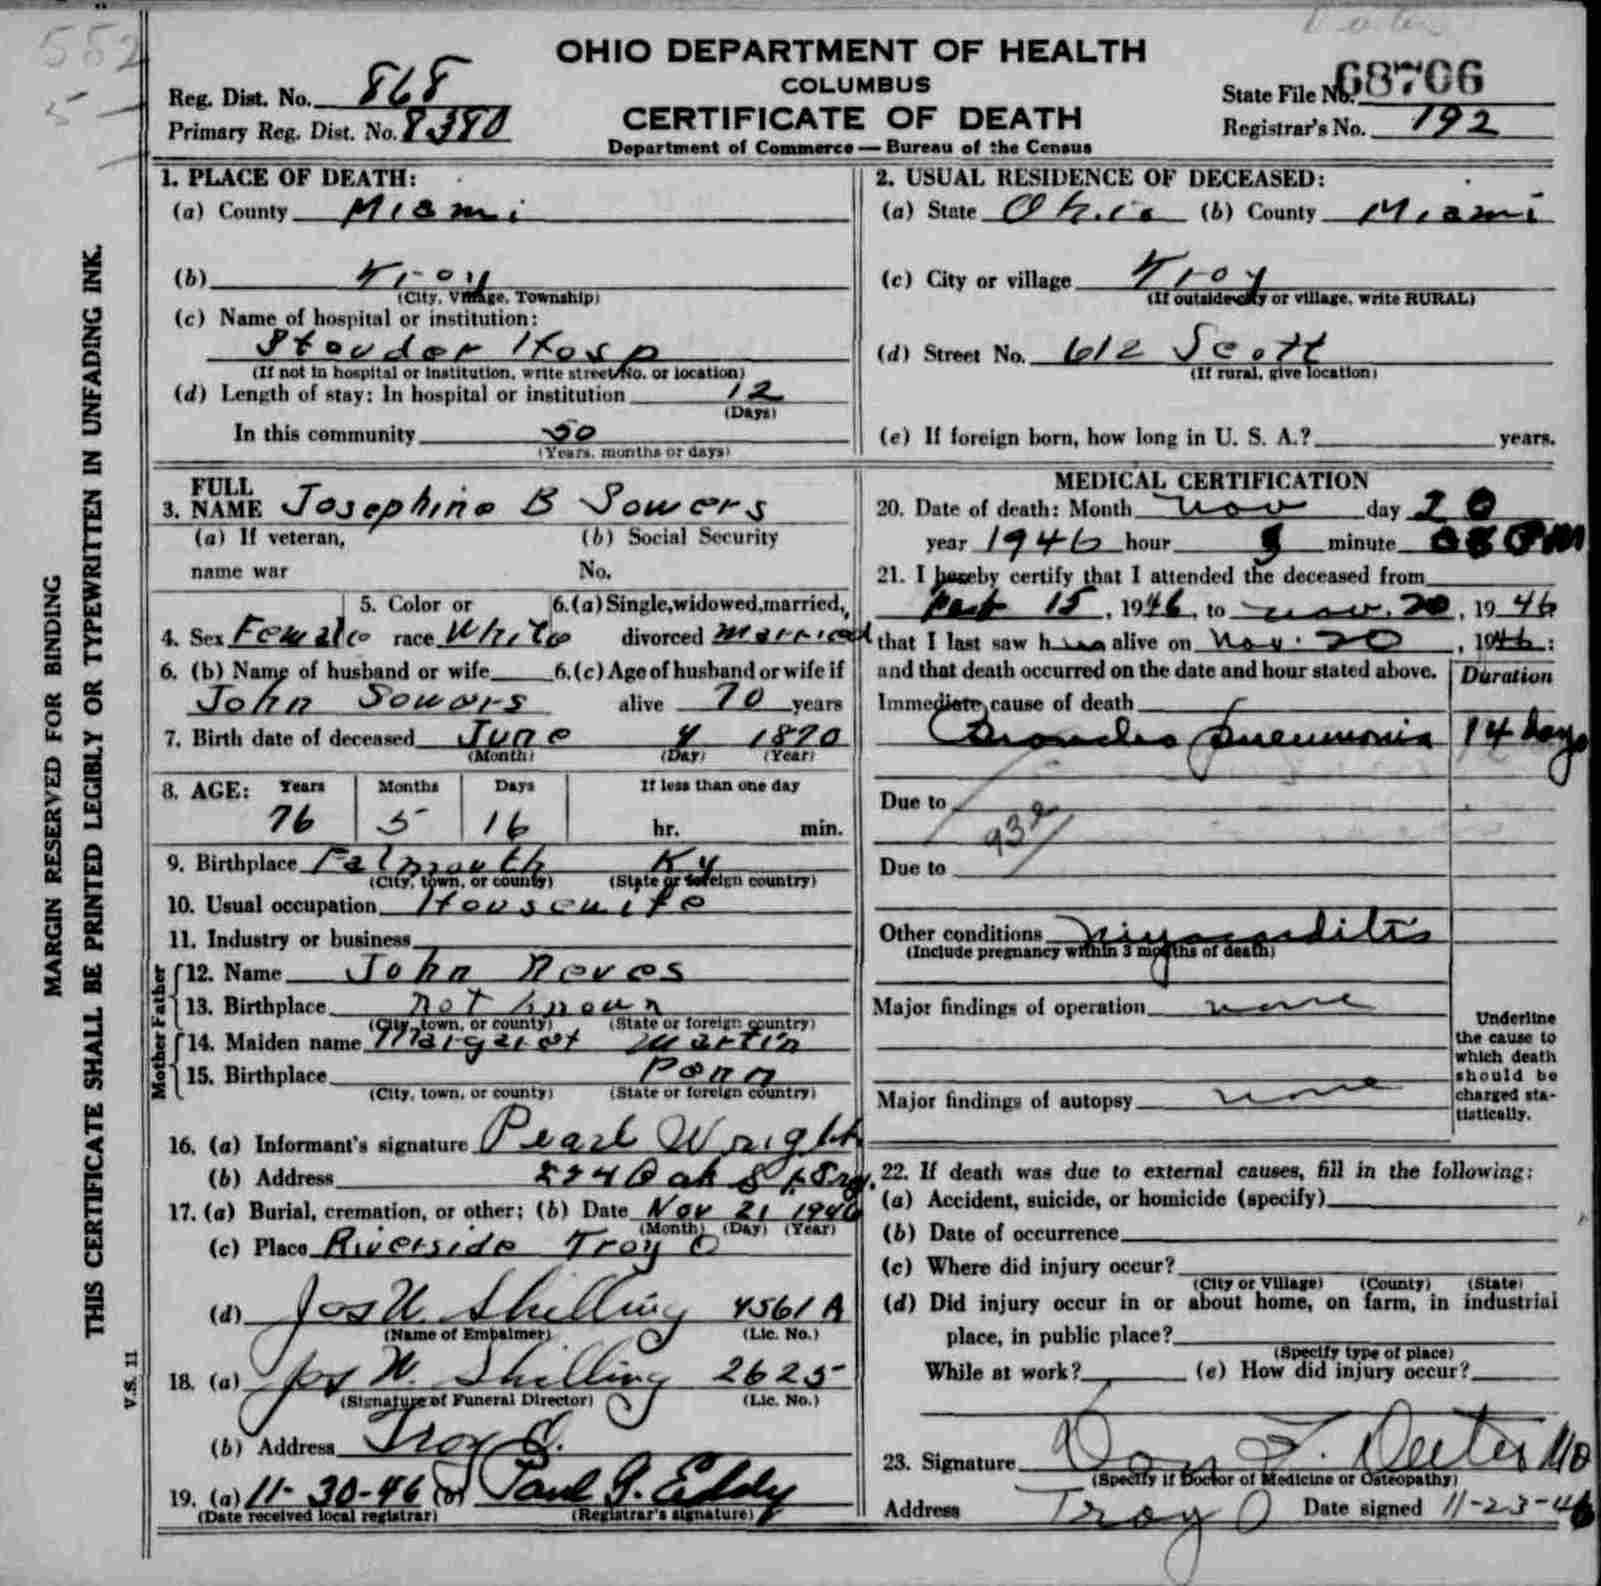 OHIO DEPARTMENT OF HEALTH
COLUMBUS
CERTIFICATE OF DEATH
Department of Commerce — Bureau of the Census
Reg. Dist. No. 868
Primary Reg. Dist. No. 8380
State File No. 68706
Registrar's No. 192
552
5 —
MARGIN RESERVED FOR BINDING
THIS CERTIFICATE SHALL BE PRINTED LEGIBLY OR TYPEWRITTEN IN UNFADING INK.
V.S. 11
1. PLACE OF DEATH:
(a) County Miami
(b) Troy
(City, Village, Township)
(c) Name of hospital or institution:
Stouder Hosp
(If not in hospital or institution, write street No. or location)
(d) Length of stay: In hospital or institution 12
(Days)
In this community 50
(Years, months or days)
2. USUAL RESIDENCE OF DECEASED:
(a) State Ohio (b) County Miami
(c) City or village Troy
(If outside city or village, write RURAL)
(d) Street No. 612 Scott
(If rural, give location)
(e) If foreign born, how long in U. S. A.? years.
3. FULL NAME Josephine B Sowers
(a) If veteran, name war
(b) Social Security No.
4. Sex Female 5. Color or race White 6. (a) Single, widowed, married, divorced Married
6. (b) Name of husband or wife John Sowers 6. (c) Age of husband or wife if alive 70 years
7. Birth date of deceased June 4 1870
(Month) (Day) (Year)
8. AGE: Years Months Days If less than one day
76 5 16 hr. min.
9. Birthplace Falmouth Ky
(City, town, or county) (State or foreign country)
10. Usual occupation Housewife
11. Industry or business
Father
12. Name John Neves
13. Birthplace not known
(City, town, or county) (State or foreign country)
Mother
14. Maiden name Margaret Martin
15. Birthplace Penn
(City, town, or county) (State or foreign country)
16. (a) Informant's signature Pearl Wright
(b) Address 224 Oak St Troy.
17. (a) Burial, cremation, or other; (b) Date Nov 21 1946
(Month) (Day) (Year)
(c) Place Riverside Troy O
(d) Jos W Shilling 4561 A
(Name of Embalmer) (Lic. No.)
18. (a) Jos W. Shilling 2625
(Signature of Funeral Director) (Lic. No.)
(b) Address Troy O.
19. (a) 11-30-46 (b) Paul G. Eddy
(Date received local registrar) (Registrar's signature)
MEDICAL CERTIFICATION
20. Date of death: Month Nov day 20
year 1946 hour minute PM
21. I hereby certify that I attended the deceased from
15, 1946, to Nov. 20, 1946
that I last saw her alive on Nov. 20, 1946:
and that death occurred on the date and hour stated above. Duration
Immediate cause of death
Broncho pneumonia 14 days
Due to
Due to
Other conditions Myocarditis
(Include pregnancy within 3 months of death)
Major findings of operation none
Major findings of autopsy none
Underline the cause to which death should be charged statistically.
22. If death was due to external causes, fill in the following:
(a) Accident, suicide, or homicide (specify)
(b) Date of occurrence
(c) Where did injury occur?
(City or Village) (County) (State)
(d) Did injury occur in or about home, on farm, in industrial
place, in public place?
(Specify type of place)
While at work? (e) How did injury occur?
23. Signature Deeter MD
(Specify if Doctor of Medicine or Osteopathy)
Address Troy O Date signed 11-23-46